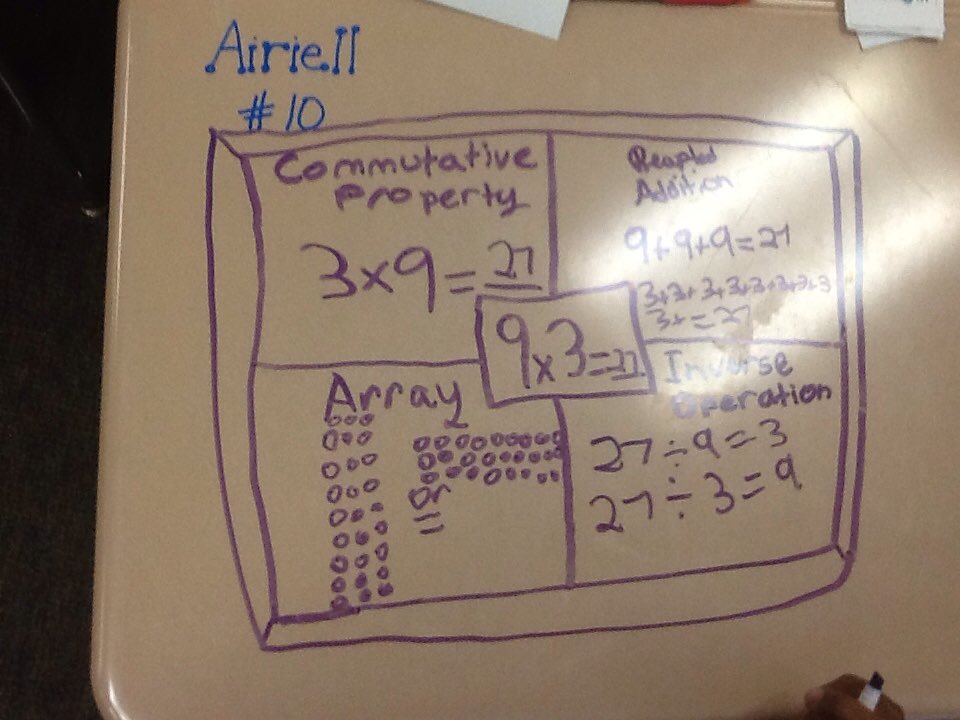 Airiell
#10
Commutative
Property
3×9=27
Reapted
Addition
9+9+9=27
3+3+3+3+3+3+3+3
3+=27
9×3=27
Array
or
Inverse
Operation
27÷9=3
27÷3=9